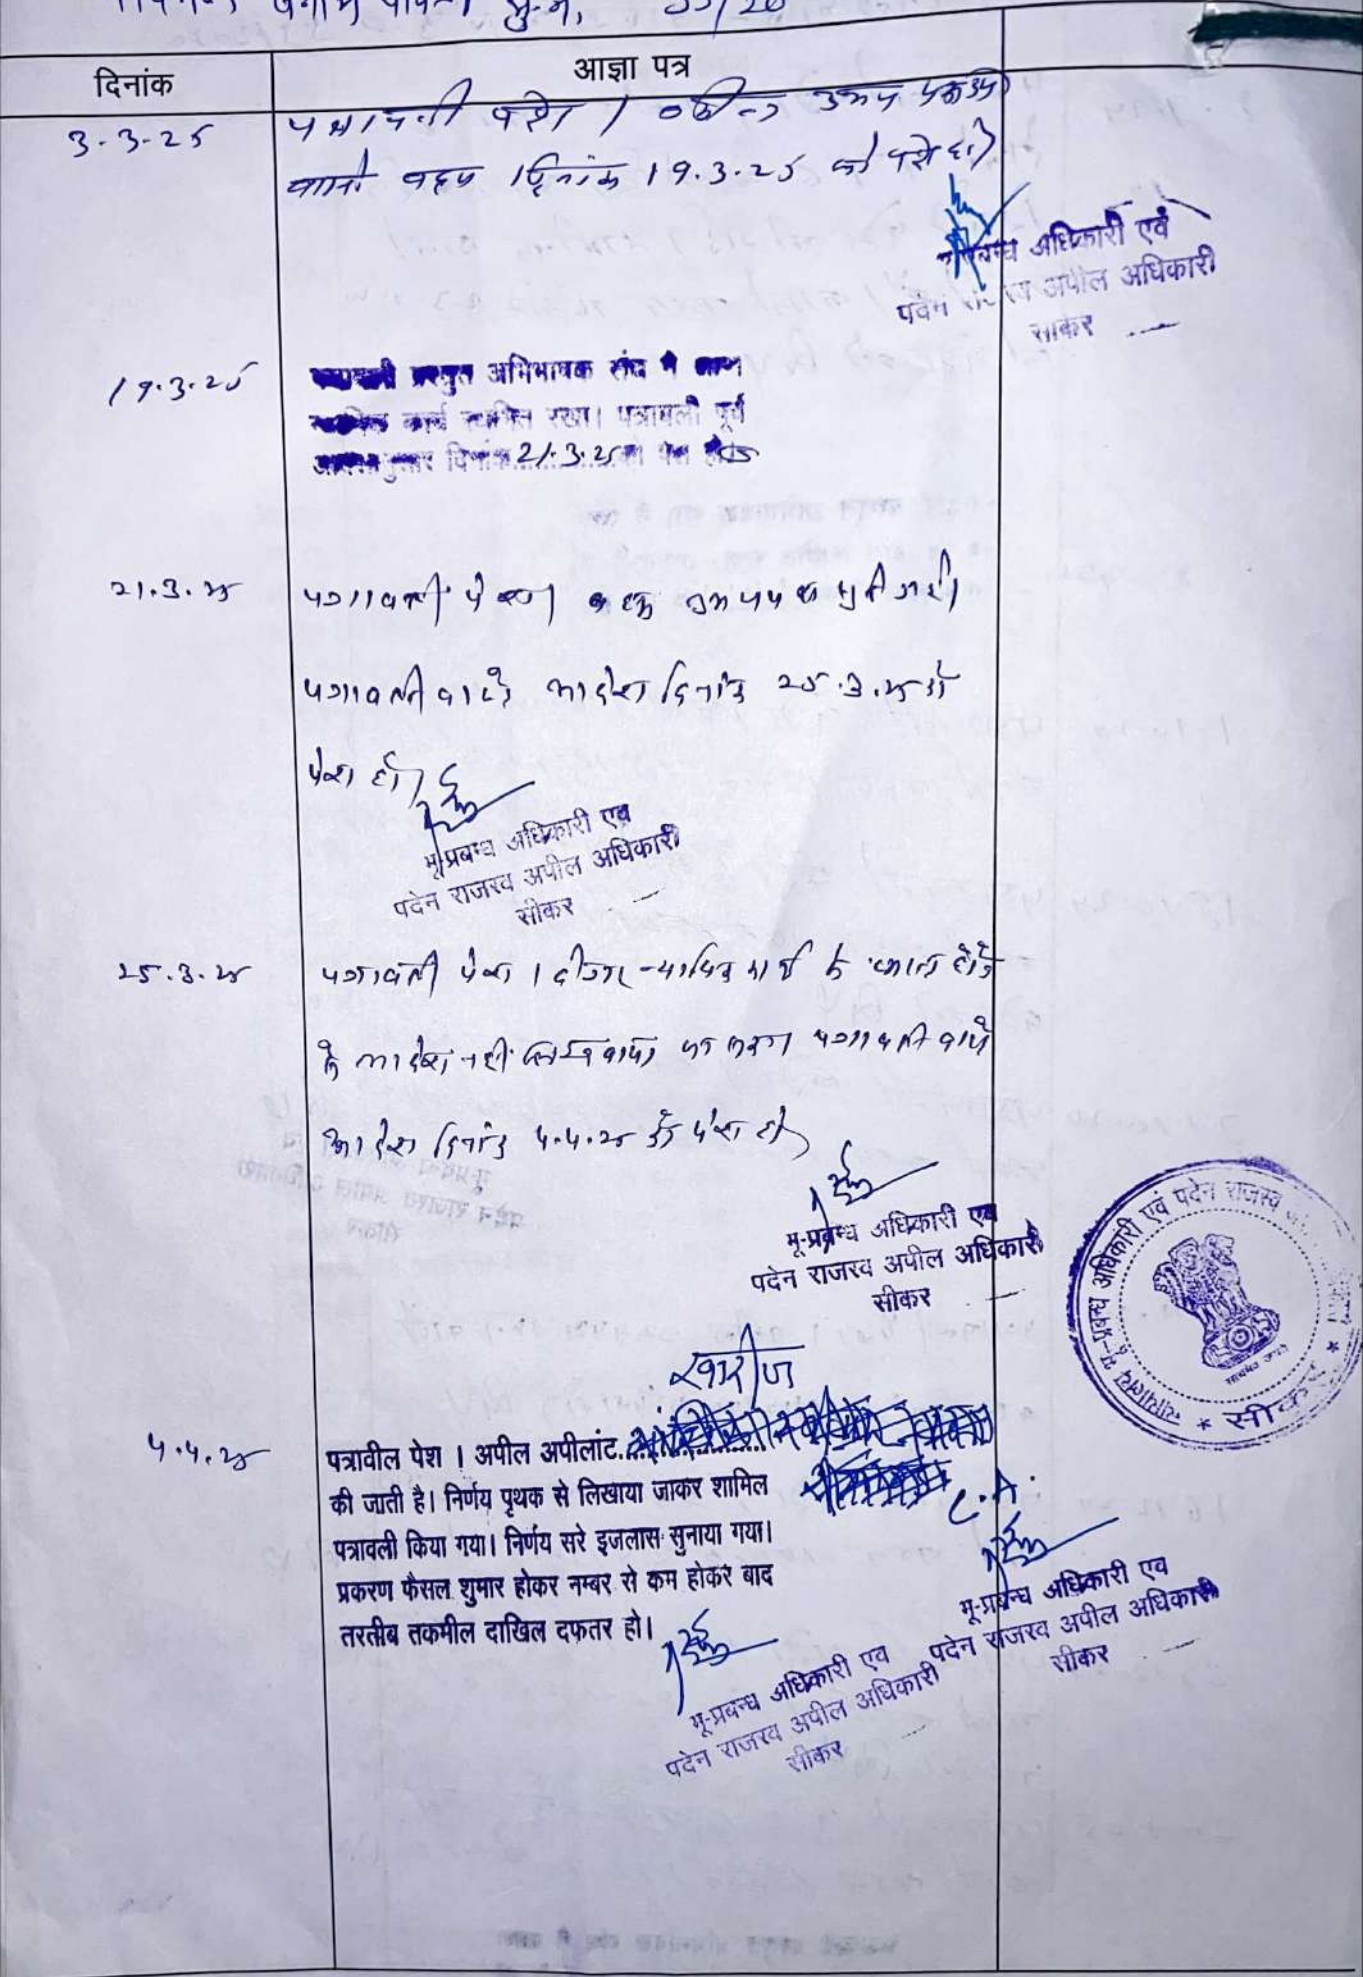 बनाम
दिनांक
आज्ञा पत्र
3-3-25
पत्रावली पेश । उभय पक्ष उप
वास्ते बहस दिनांक 19.3.25 को पेश हो
अधिकारी एवं
पदेन अपील अधिकारी
सीकर
19.3.25
प्रस्तुत अभिभाषक संघ ने
कार्य स्थगित रखा। पत्रावली पूर्व
दिनांक 21.3.25 को पेश हो
21.3.25
पत्रावली पेश। बहस उभय पक्ष सुनी गयी।
पत्रावली वास्ते आदेश दिनांक 25.3.25 को
पेश हो।
भू-प्रबन्ध अधिकारी एवं
पदेन राजस्व अपील अधिकारी
सीकर
25.3.25
पत्रावली पेश । दीगर न्यायिक कार्य के कारण होने
से आदेश नही लिखवाया जा सका। पत्रावली वास्ते
आदेश दिनांक 4.4.25 को पेश हो
भू-प्रबन्ध अधिकारी एवं
पदेन राजस्व अपील अधिकारी
सीकर
न्यायालय भू-प्रबन्ध अधिकारी एवं पदेन राजस्व
* सीकर *
खारीज
4.4.25
पत्रावील पेश । अपील अपीलांट
की जाती है। निर्णय पृथक से लिखाया जाकर शामिल
पत्रावली किया गया। निर्णय सरे इजलास सुनाया गया।
प्रकरण फैसल शुमार होकर नम्बर से कम होकर बाद
तरतीब तकमील दाखिल दफतर हो।
भू-प्रबन्ध अधिकारी एवं
पदेन राजस्व अपील अधिकारी
सीकर
भू-प्रबन्ध अधिकारी एवं
पदेन राजस्व अपील अधिकारी
सीकर